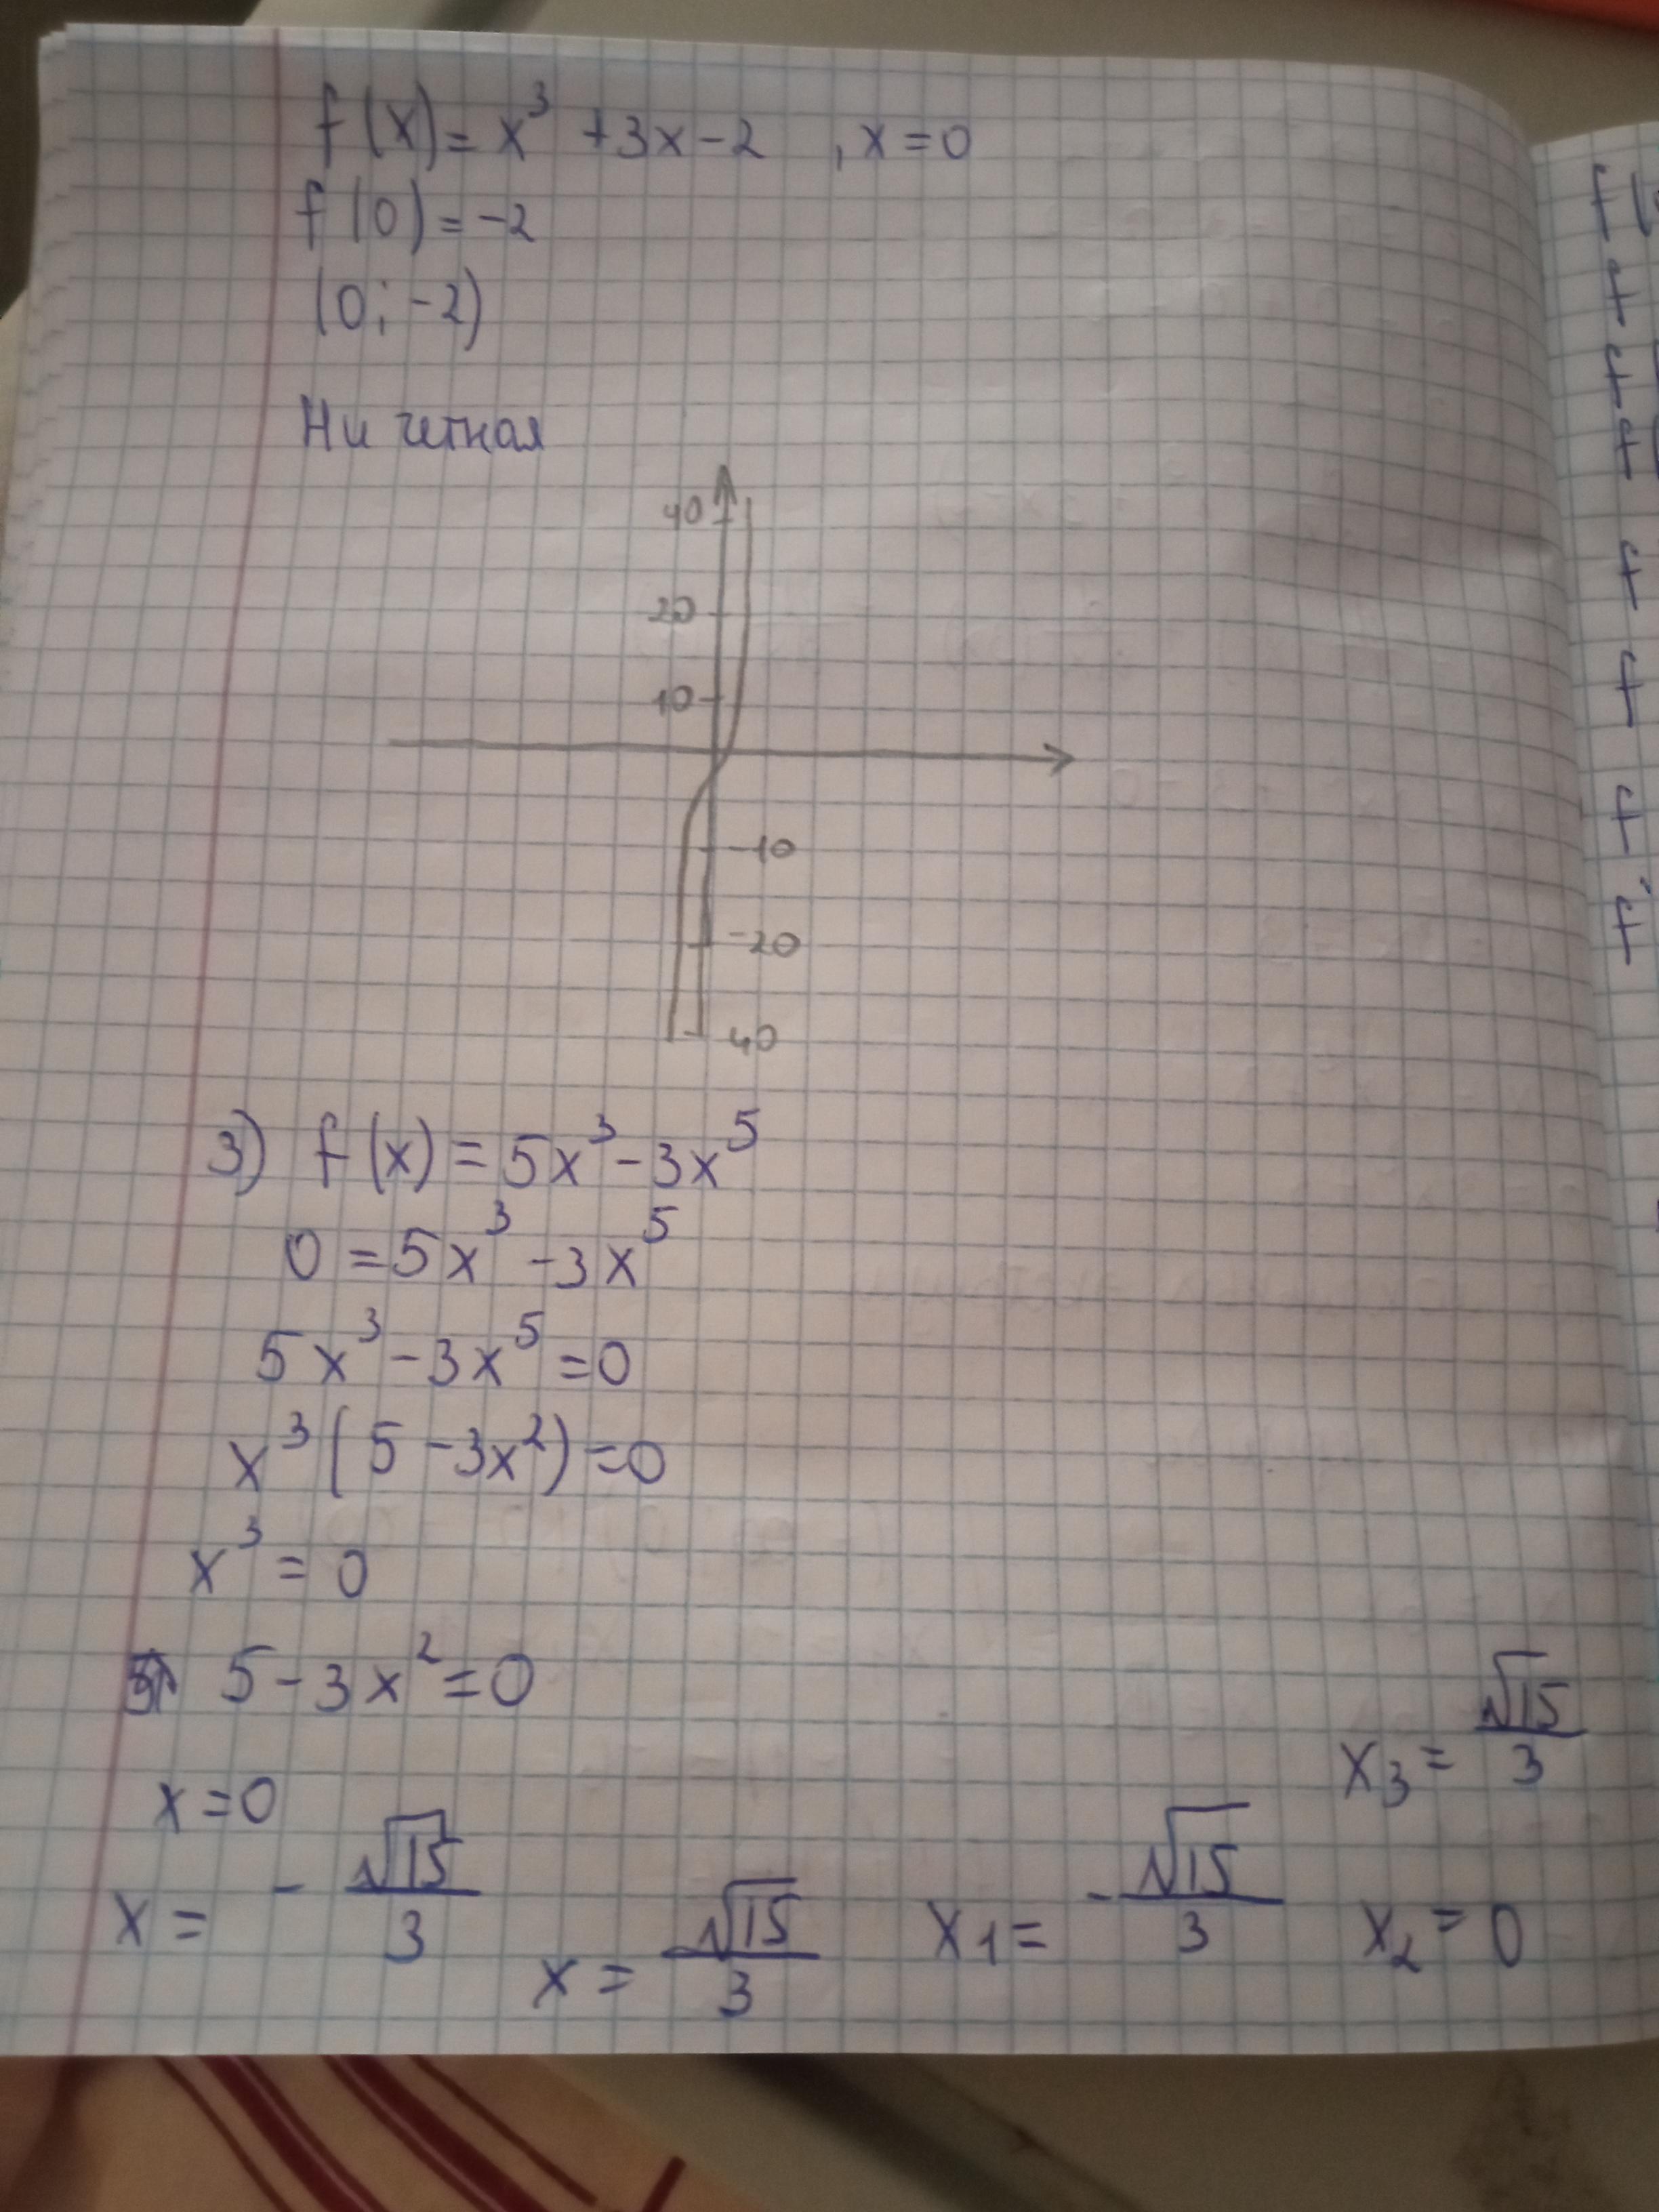 f(x) = x³ + 3x - 2 , x = 0
f(0) = -2
(0; -2)
Ни четная
40
20
10
-10
-20
40
3) f(x) = 5x³ - 3x⁵
0 = 5x³ - 3x⁵
5x³ - 3x⁵ = 0
x³(5 - 3x²) = 0
x³ = 0
5 - 3x² = 0
x = 0
x = -√15/3 x = √15/3 x₁ = -√15/3 x₂ = 0 x₃ = √15/3